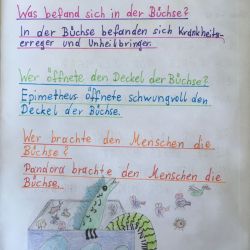 Was befand sich in der Büchse?
In der Büchse befanden sich Krankheits-
erreger und Unheilbringer.
Wer öffnete den Deckel der Büchse?
Epimetheus öffnete schwungvoll den
Deckel der Büchse.
Wer brachte den Menschen die
Büchse?
Pandora brachte den Menschen die
Büchse.